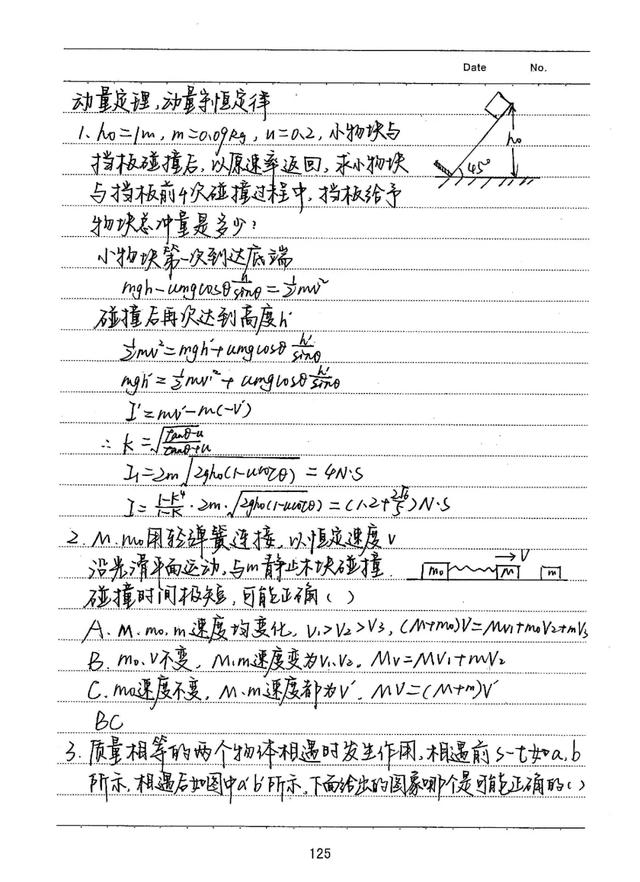 Date No.
动量定理,动量守恒定律
1、h₀=1m,m=0.09kg,u=0.2,小物块与
挡板碰撞后,以原速率返回,求小物块
与挡板前4次碰撞过程中,挡板给予
物块总冲量是多少?
h₀
45°
小物块第一次到达底端
mgh-umgcosθ h/sinθ=½mv²
碰撞后再次达到高度h'
½mv²=mgh'+umgcosθ h'/sinθ
mgh'=½mv'²+umgcosθ h'/sinθ
I'=mv'-m(-v')
∴ k=√((tanθ-u)/(tanθ+u))
I₁=2m√(2gh₀(1-ucotθ))=4N·S
I=(1-k⁴)/(1-k)·2m·√(2gh₀(1-ucotθ))=(1.2+2√6/5)N·S
2、M.m₀用轻弹簧连接,以恒定速度v
沿光滑平面运动,与m静止木块碰撞.
碰撞时间极短,可能正确( )
V
m₀ M m
A、M.m₀,m速度均变化,V₁>V₂>V₃,(M+m₀)V=MV₁+m₀V₂+mV₃
B、m₀.V不变,M.m速度变为V₁.V₂,MV=MV₁+mV₂
C、m₀速度不变,M、m速度都为V',MV=(M+m)V'
BC
3、质量相等的两个物体相遇时发生作用,相遇前s-t如a.b
所示,相遇后如图中a'b'所示,下面给出的图象哪个是可能正确的( )
125